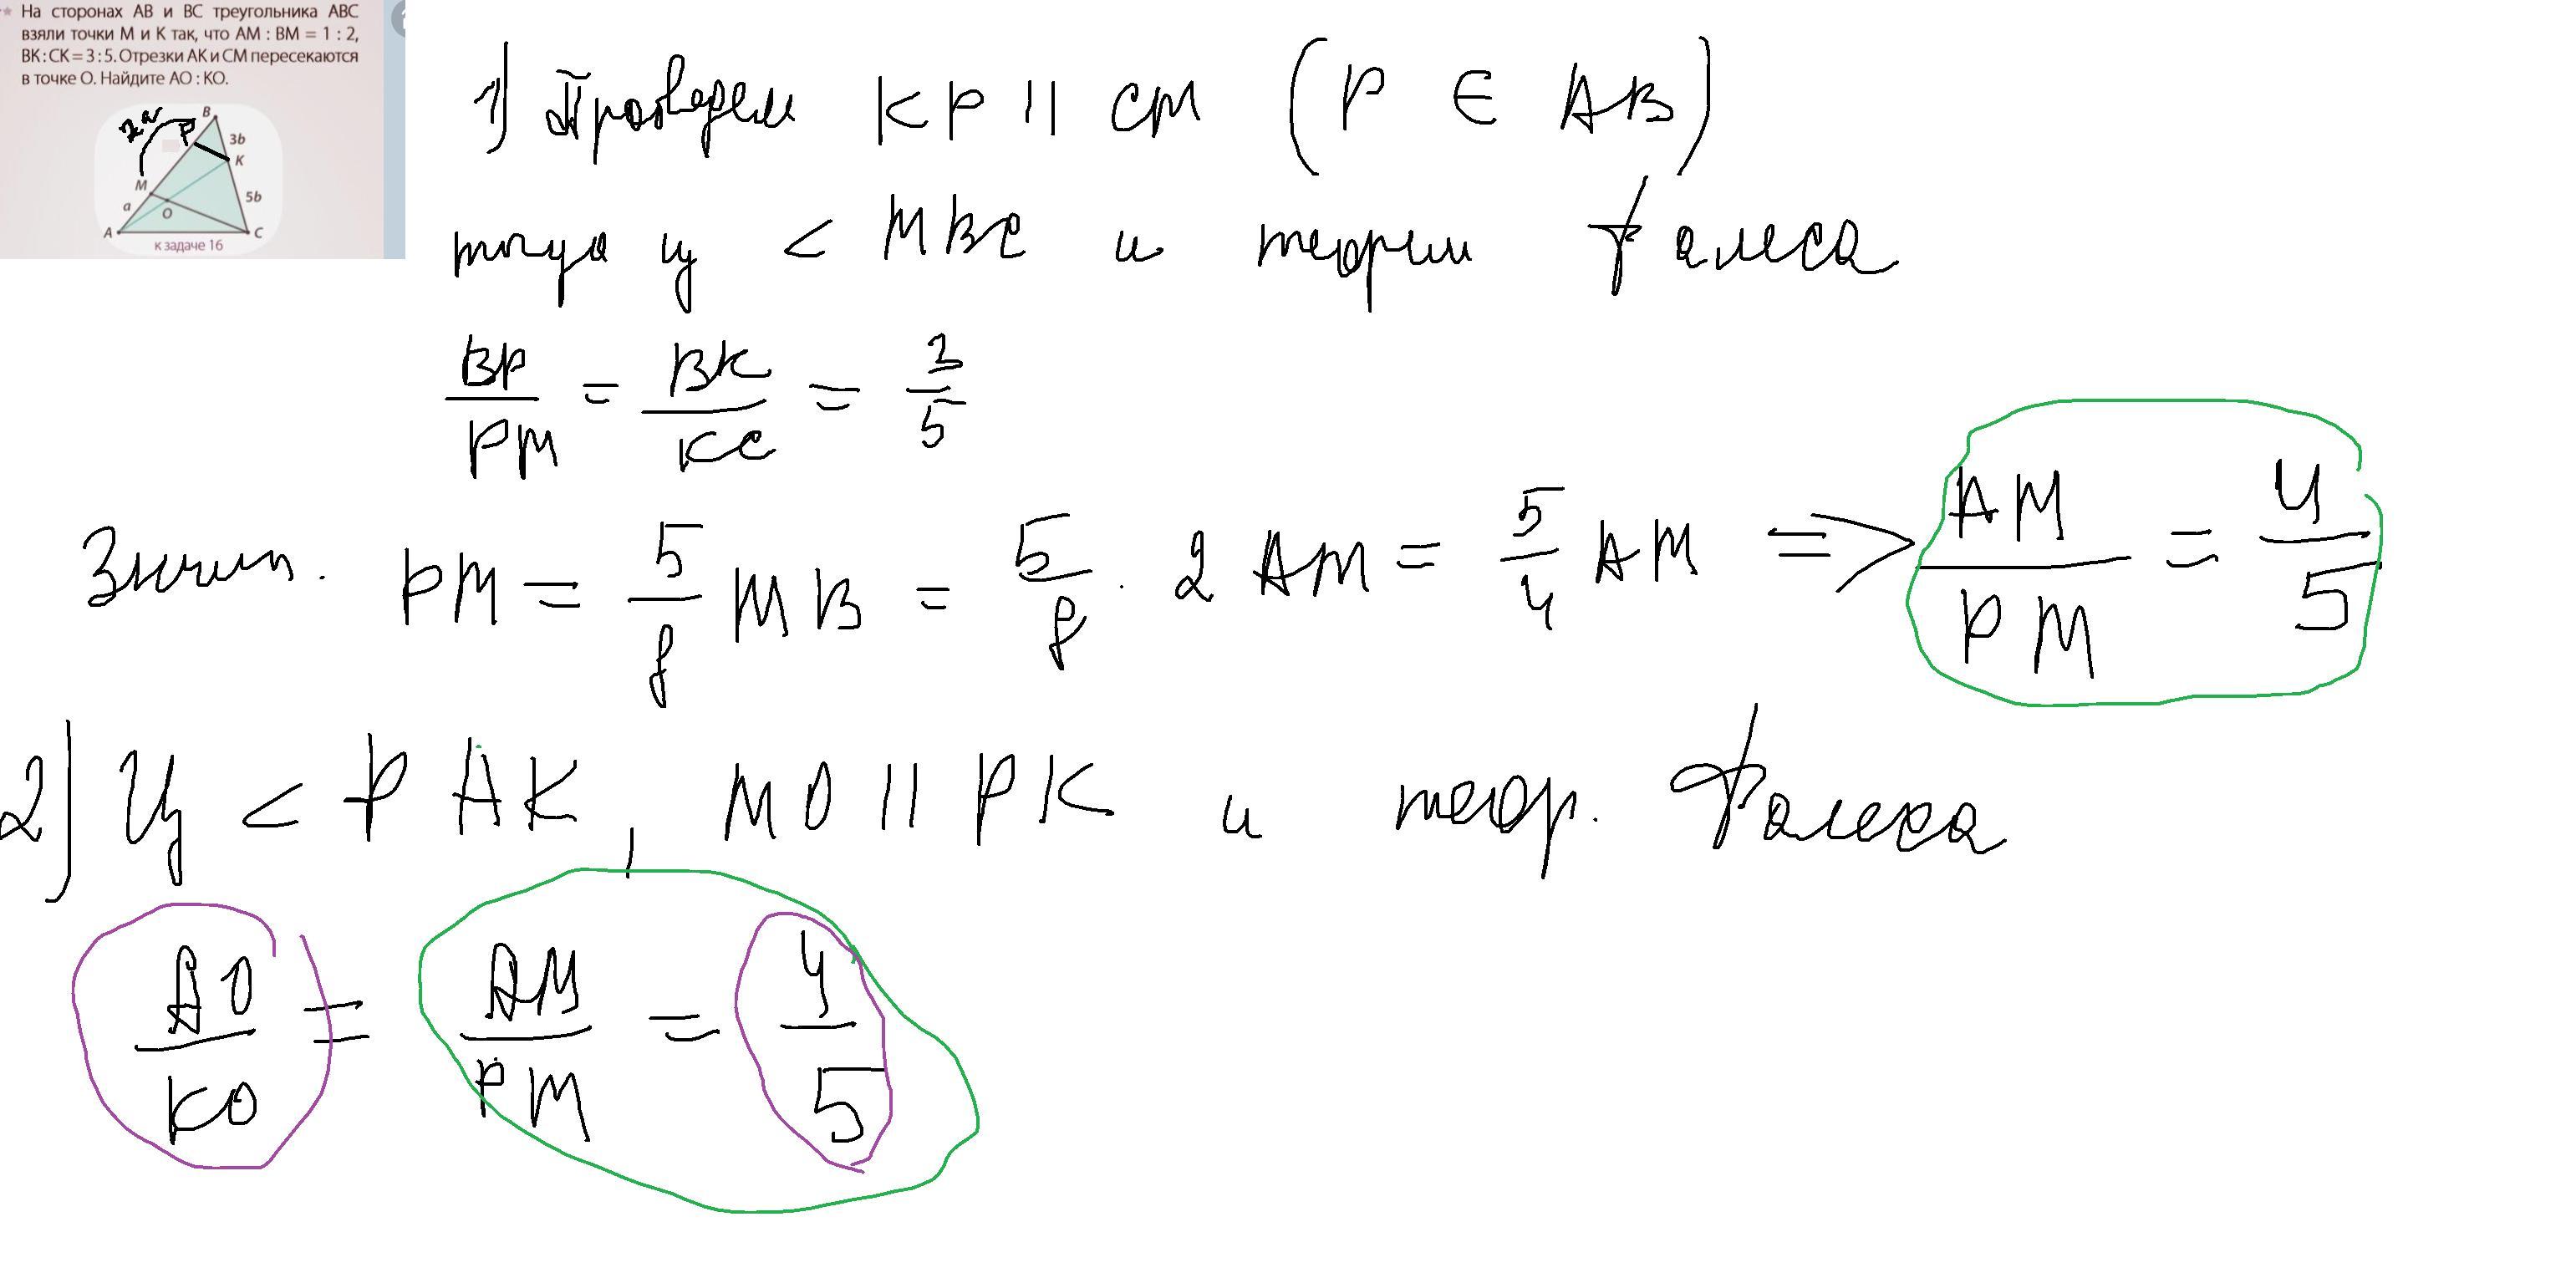 На сторонах AB и BC треугольника ABC
взяли точки M и K так, что AM : BM = 1 : 2,
BK : CK = 3 : 5. Отрезки AK и CM пересекаются
в точке O. Найдите AO : KO.
2a
P
B
3b
K
M
5b
a
O
A
C
к задаче 16
1) Проведем KP || CM (P ∈ AB)
тогда из < MBC и теории Фалеса
BP/PM = BK/KC = 3/5
Значит. PM = 5/8 MB = 5/8 · 2 AM = 5/4 AM => AM/PM = 4/5
2) Из < PAK, MO || PK и теор. Фалеса
AO/KO = AM/PM = 4/5